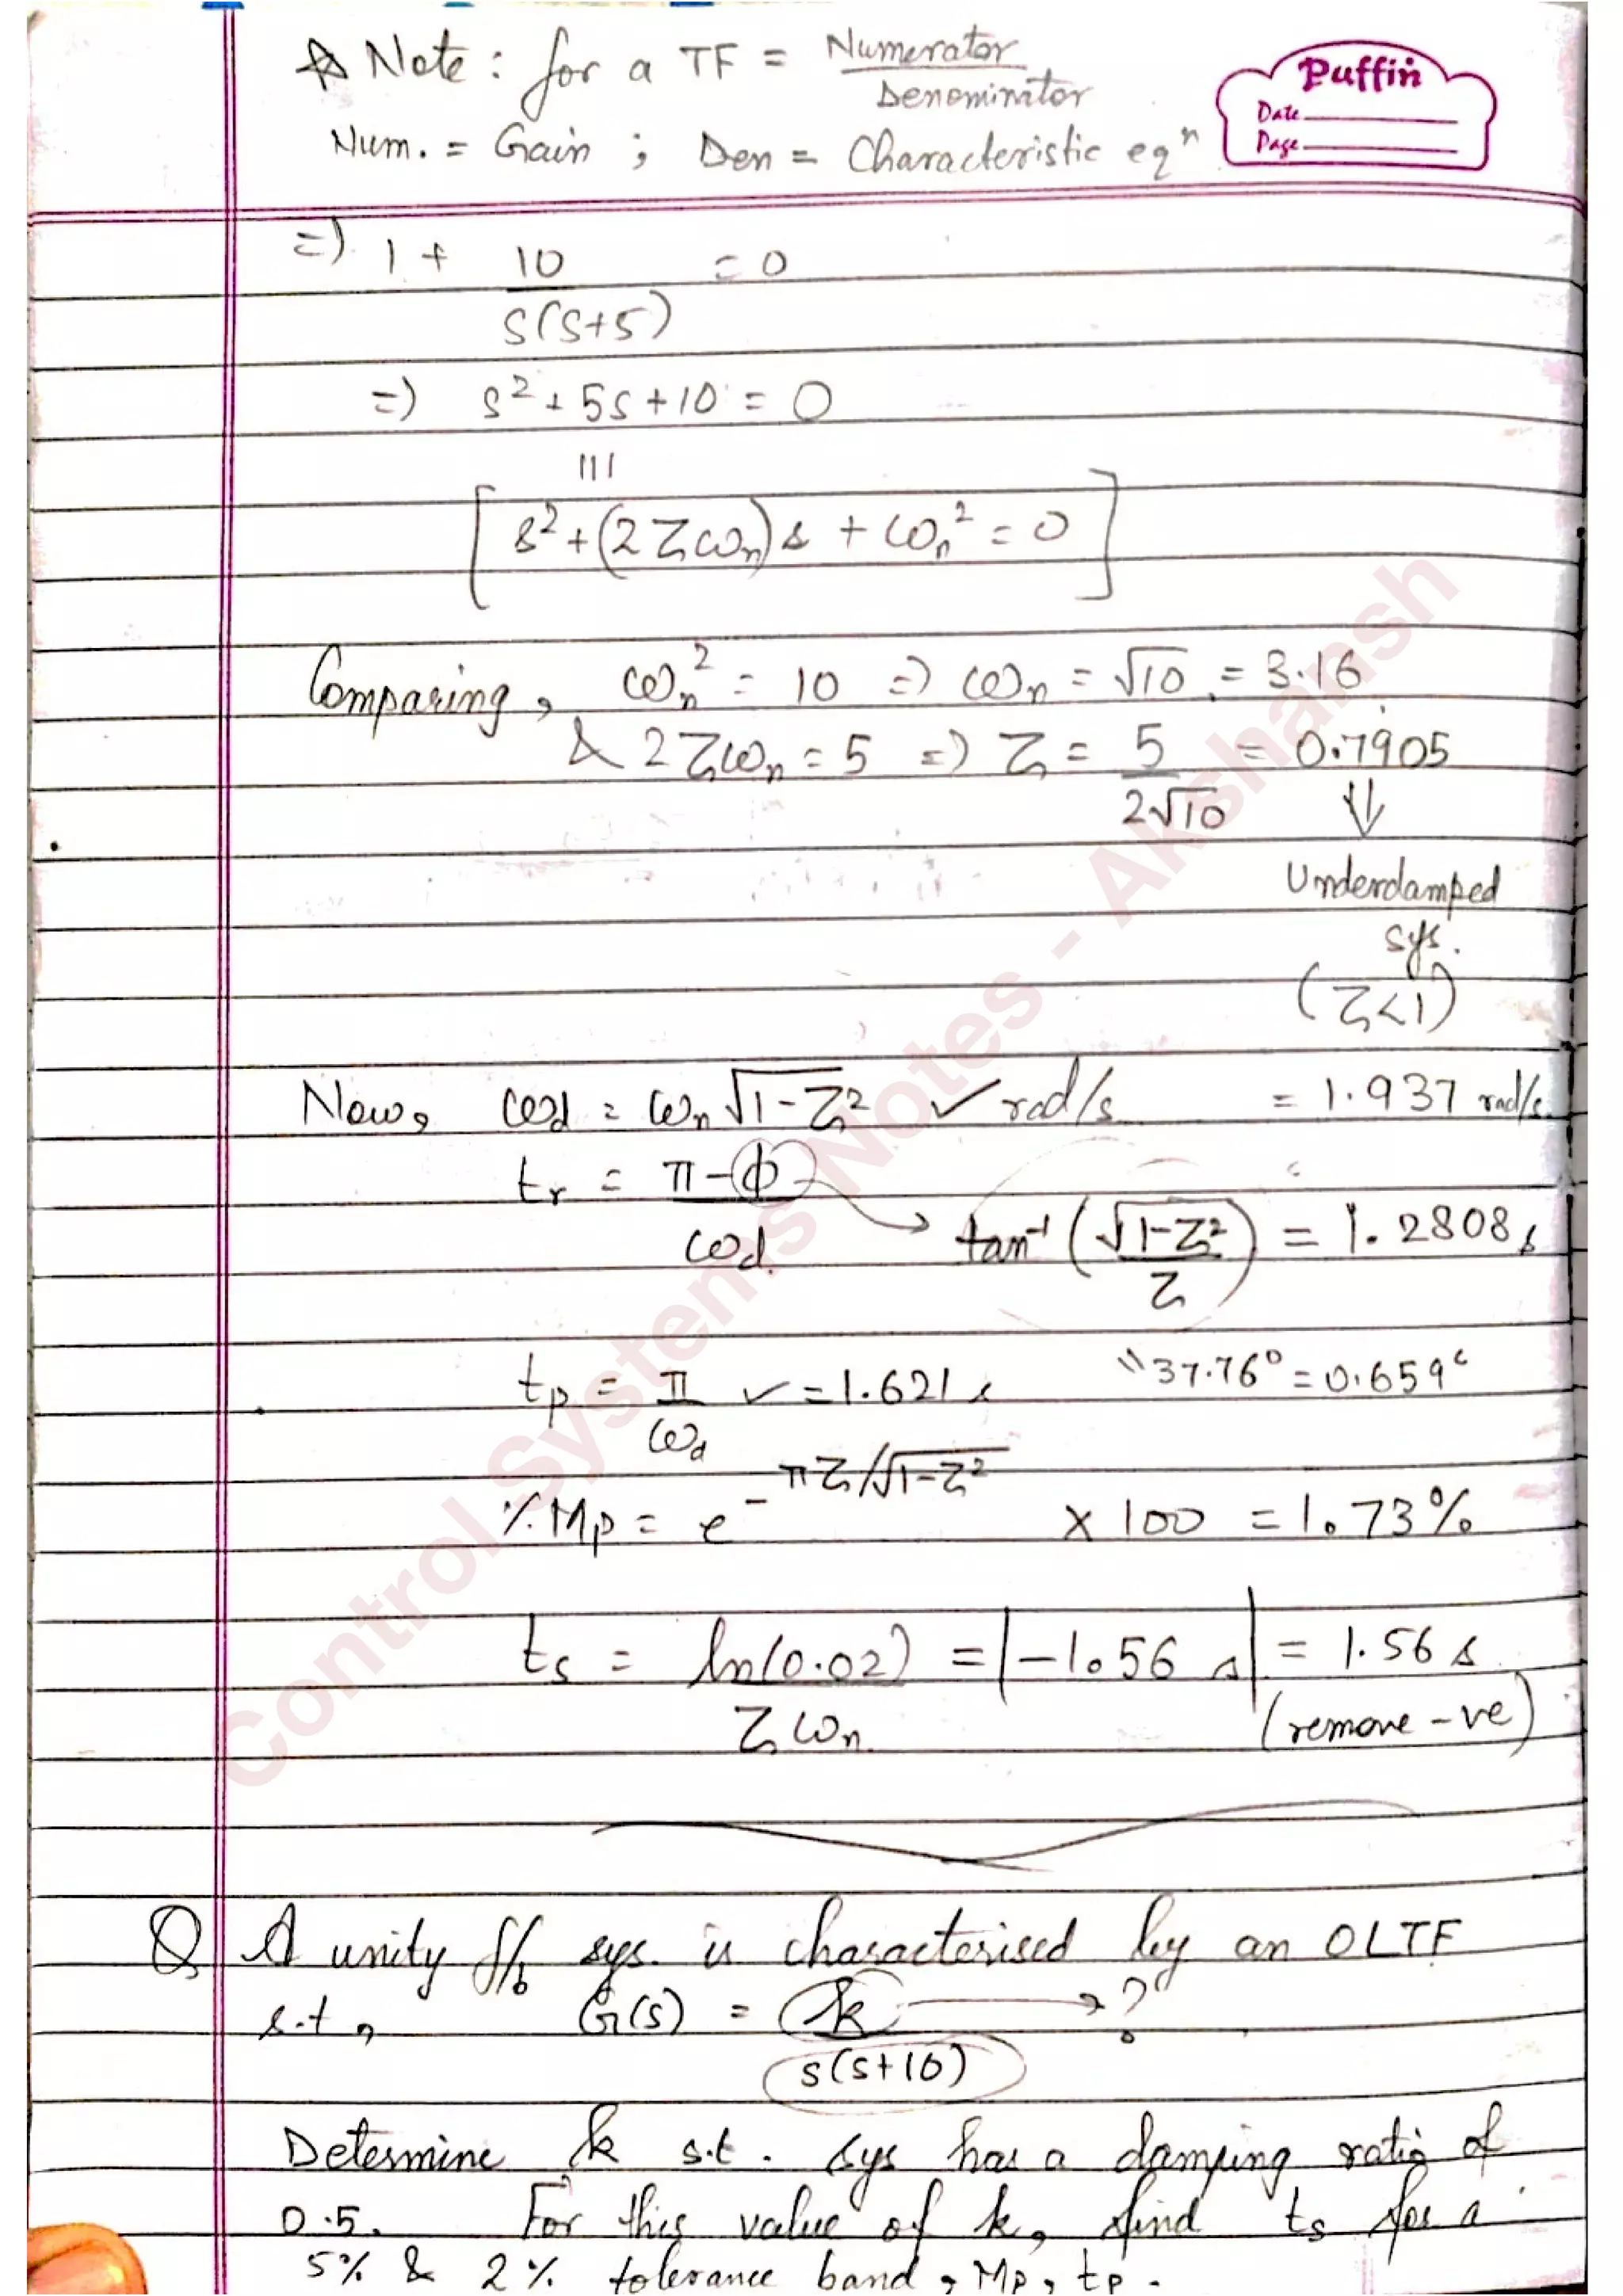 ☆ Note : for a TF = Numerator / Denominator
Puffin
Date
Page
Num. = Gain ; Den = Characteristic eqⁿ
=> 1 + 10 / s(s+5) = 0
=> s² + 5s + 10 = 0
|||
[ s² + (2ζωₙ)s + ωₙ² = 0 ]
Comparing, ωₙ² = 10 => ωₙ = √10 = 3.16
& 2ζωₙ = 5 => ζ = 5 / 2√10 = 0.7905
⇓
Underdamped
sys.
(ζ<1)
Now, ωd = ωₙ √1-ζ² ✓ rad/s = 1.937 rad/s
tr = π-ϕ / ωd → tan⁻¹ (√1-ζ² / ζ) = 1.2808 s
tp = π / ωd ✓ = 1.621 s
"37.76° = 0.659ᶜ
% Mp = e^(-πζ/√1-ζ²) × 100 = 1.73%
ts = ln(0.02) / ζωₙ = |-1.56 s| = 1.56 s
(remove -ve)
Q A unity f/b sys. is characterised by an OLTF
s.t, G(s) = k / s(s+10) → ?
Determine k s.t. sys has a damping ratio of
0.5. For this value of k, find ts for a
5% & 2% tolerance band, Mp, tp.
Control Systems Notes - Akshansh